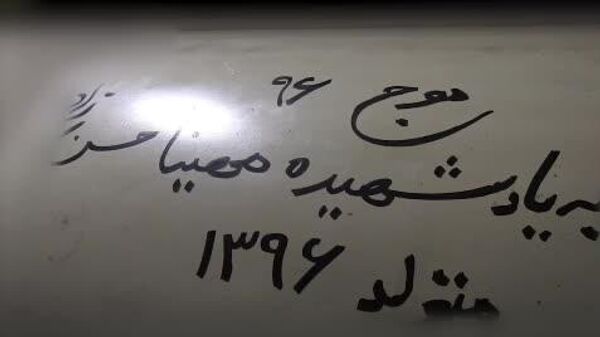 موج ۹۶
به یاد شهیده مهینا خزنژاد
متولد ۱۳۹۶